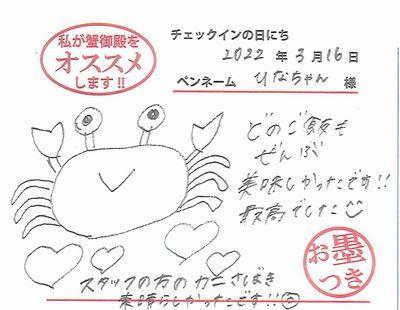 私が蟹御殿を
オススメ
します!!
チェックインの日にち
2022 年 3 月 16 日
ペンネーム ひなちゃん 様
どのご飯も
ぜんぶ
美味しかったです!!
最高でした
お墨
つき
スタッフの方のカニさばき
素晴らしかったです!!